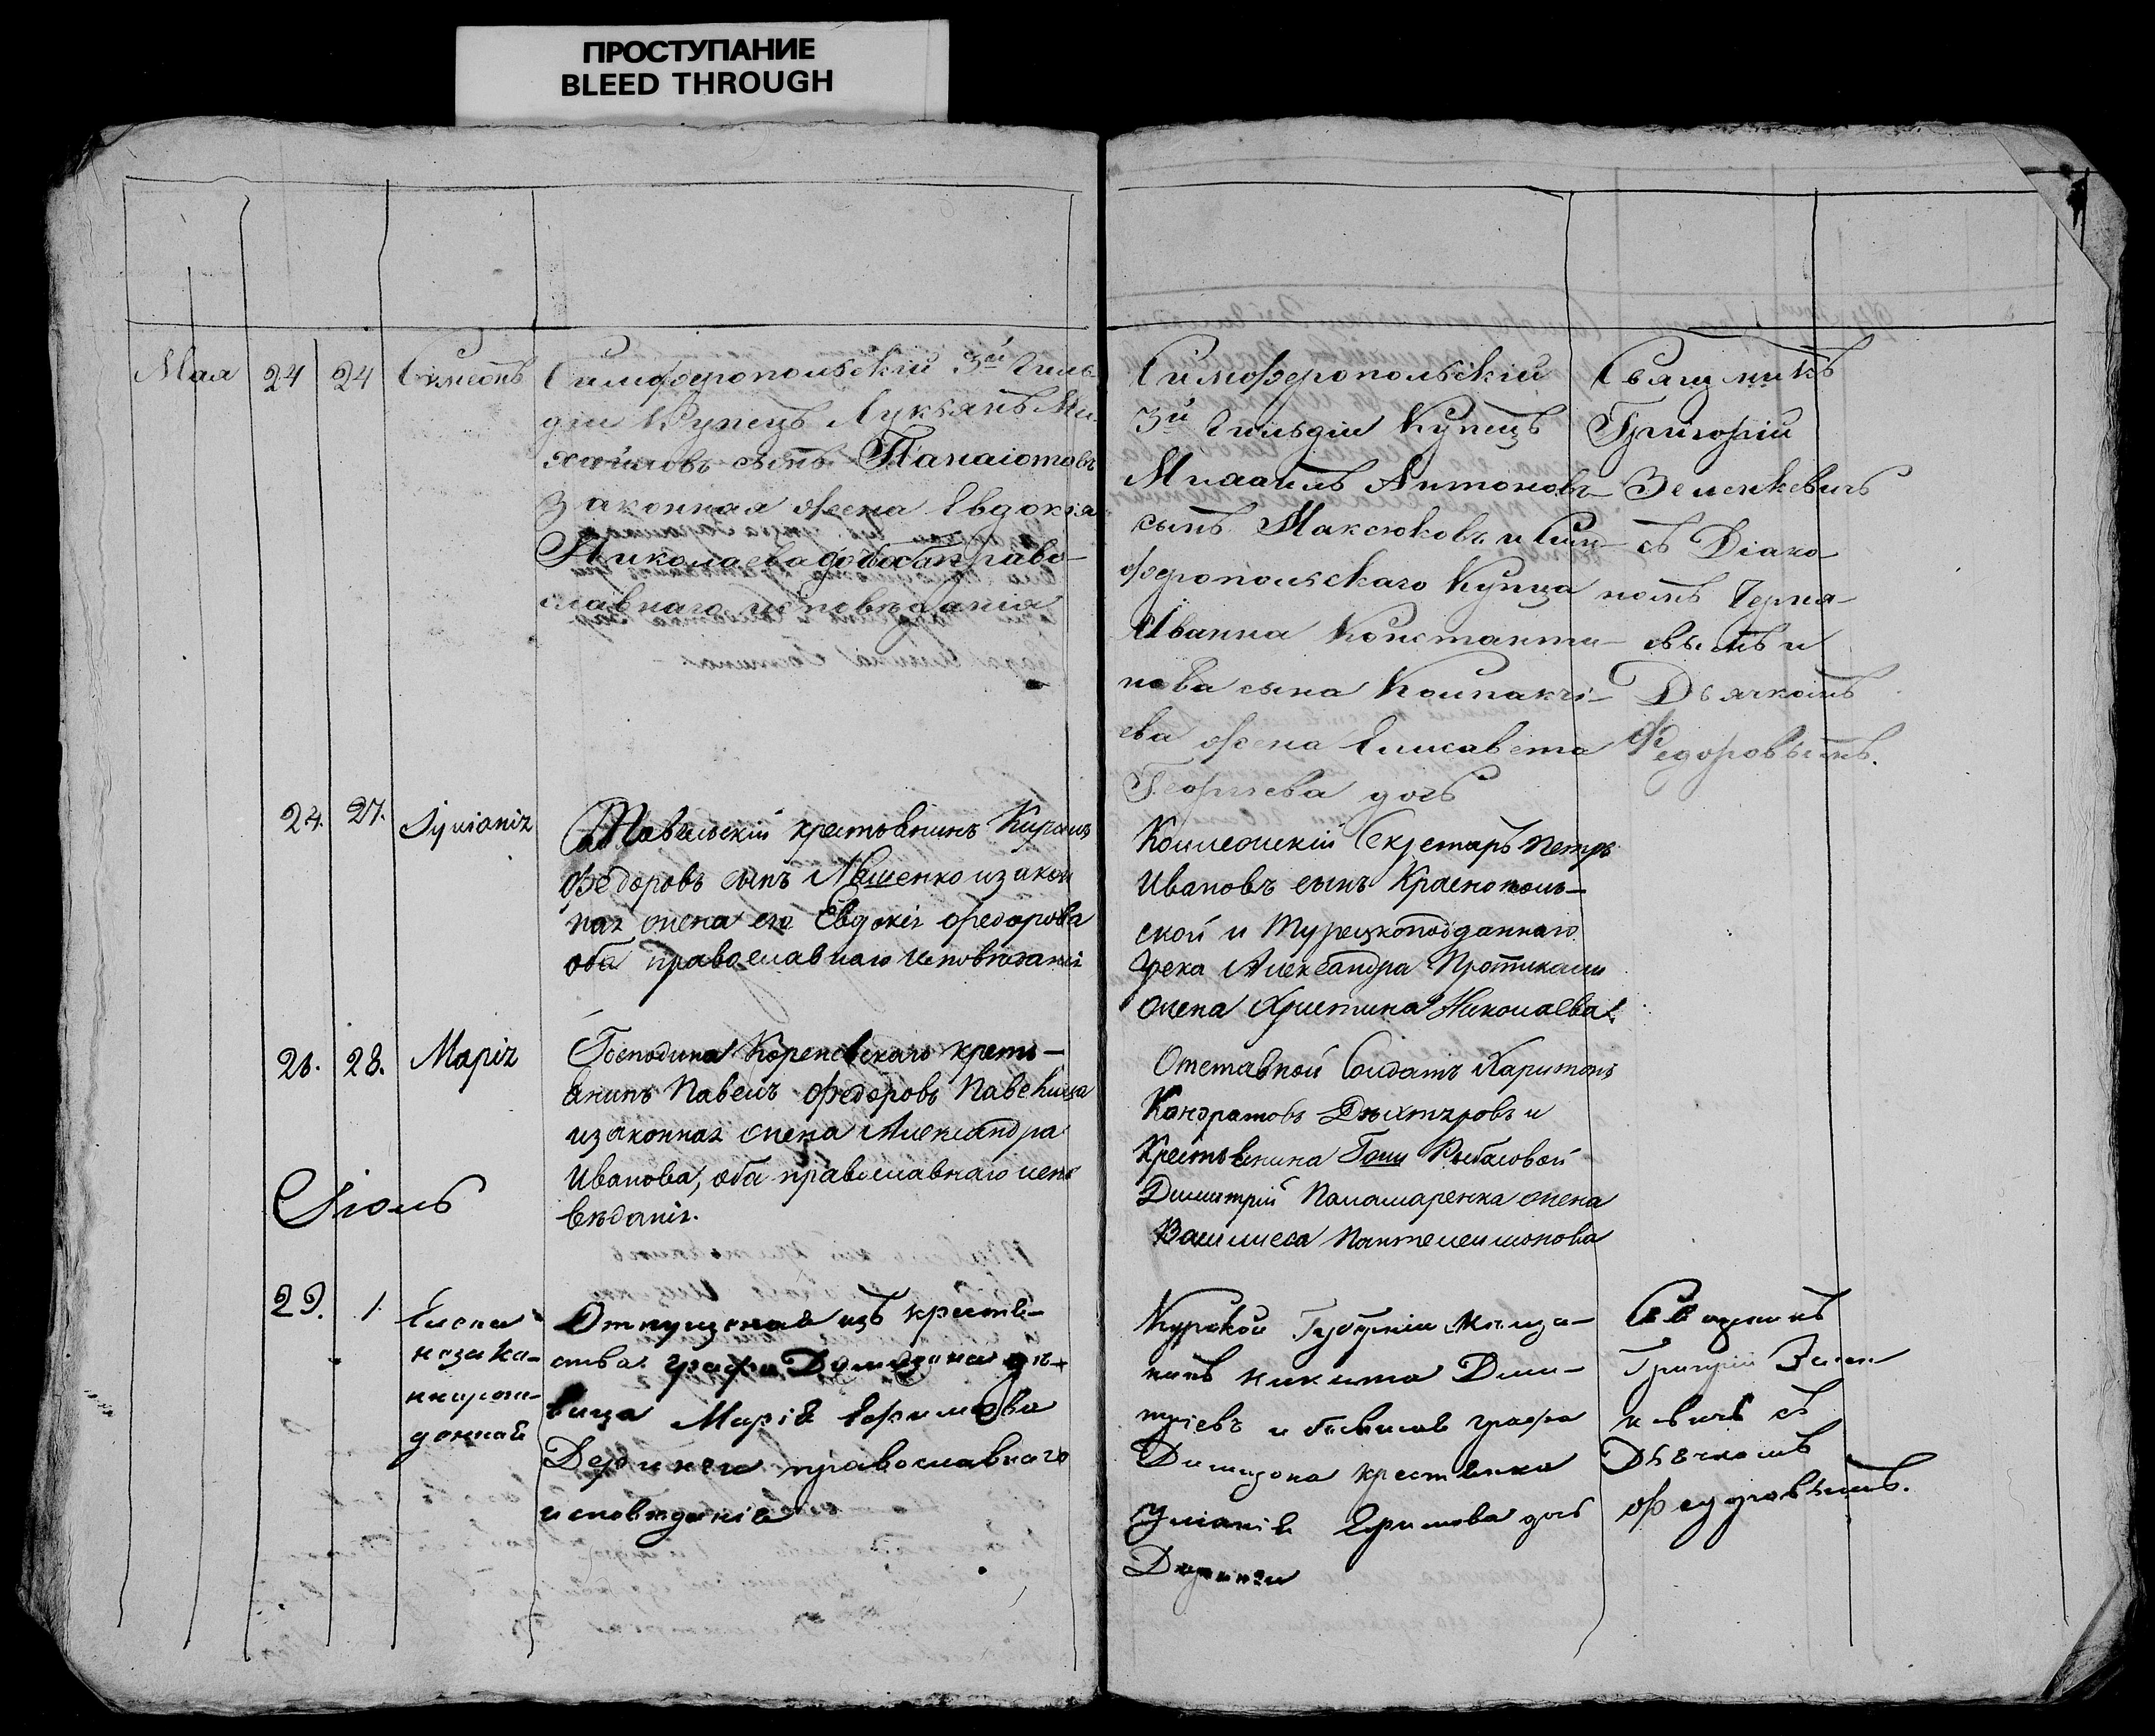 ПРОСТУПАНИЕ
BLEED THROUGH
Мая 24 24 Симеонъ
Симферопольскій 3й Гиль-
діи Купецъ Лукьянъ Ми-
хайловъ сынъ Панаіотовъ
Законная жена Евдокія
Николаева оба право-
славнаго исповѣданія
Симферопольскій
3й Гильдіи Купецъ
Михаилъ Антоновъ
сынъ Максюковъ и Сим-
феропольскаго Купца
Иванна Константи-
нова сына
ева жена Елисавета
Георгіева дочь
Священникъ
Григорій
Зеленкевичъ
съ Діако-
номъ Черня-
евымъ и
Дьячкомъ
Федоровымъ.
24. 27. Іуліанія
крестьянинъ Кирилъ
Федоровъ сынъ изакон
ная жена его Евдокія Федорова
оба православнаго исповѣданія
Коллежскій Секретарь Петръ
Ивановъ сынъ Краснополь-
ской и Турецкоподданнаго
Грека Александра
жена Христина Николаева.
28. Марія
Господина крестья-
анинъ Павелъ Федоровъ
изаконная жена Александра
Иванова, оба православнаго испо
вѣданія.
Отставной Солдатъ Харитонъ
Кондратовъ и
Крестьянина Гжи Рыбасовой
Димитрій Паламаренка жена
Василиса Пантелеимонова
Іюнь
29. 1. Елена
незако-
ннорож-
донная
Отпущеная изъ крестья-
нства графа дѣ-
вица Марія Ефимова
православнаго
исповѣданія
Курской Губерніи Мѣща-
нинъ Никита Дми-
тріевъ и графа
крестьянка
Уліанія Ефимова дочь
Священикъ
Григорій Зелен
кевичъ съ
Дьячкомъ
Федоровымъ.